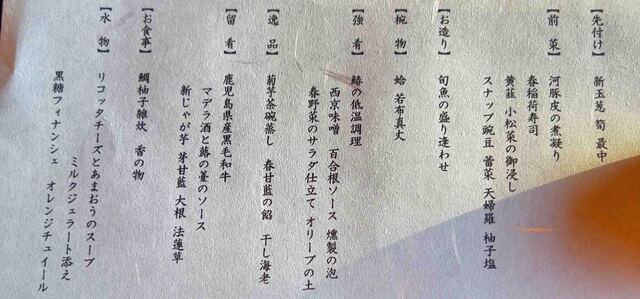 【先付け】 新玉葱 筍 最中
【前 菜】 河豚皮の煮凝り
春稲荷寿司
黄韮 小松菜の御浸し
スナップ豌豆 蕾菜 天婦羅 柚子塩
【お造り】 旬魚の盛り逢わせ
【椀 物】 蛤 若布真丈
【強 肴】 鰆の低温調理
西京味噌 百合根ソース 燻製の泡
春野菜のサラダ仕立て オリーブの土
【逸 品】 菊芋茶碗蒸し 春甘藍の餡 干し海老
【留 肴】 鹿児島県産黒毛和牛
マデラ酒と蕗の薹のソース
新じゃが芋 芽甘藍 大根 法蓮草
【お食事】 鯛柚子雑炊 香の物
【水 物】 リコッタチーズとあまおうのスープ
ミルクジェラート添え
黒糖フィナンシェ オレンジチュイール